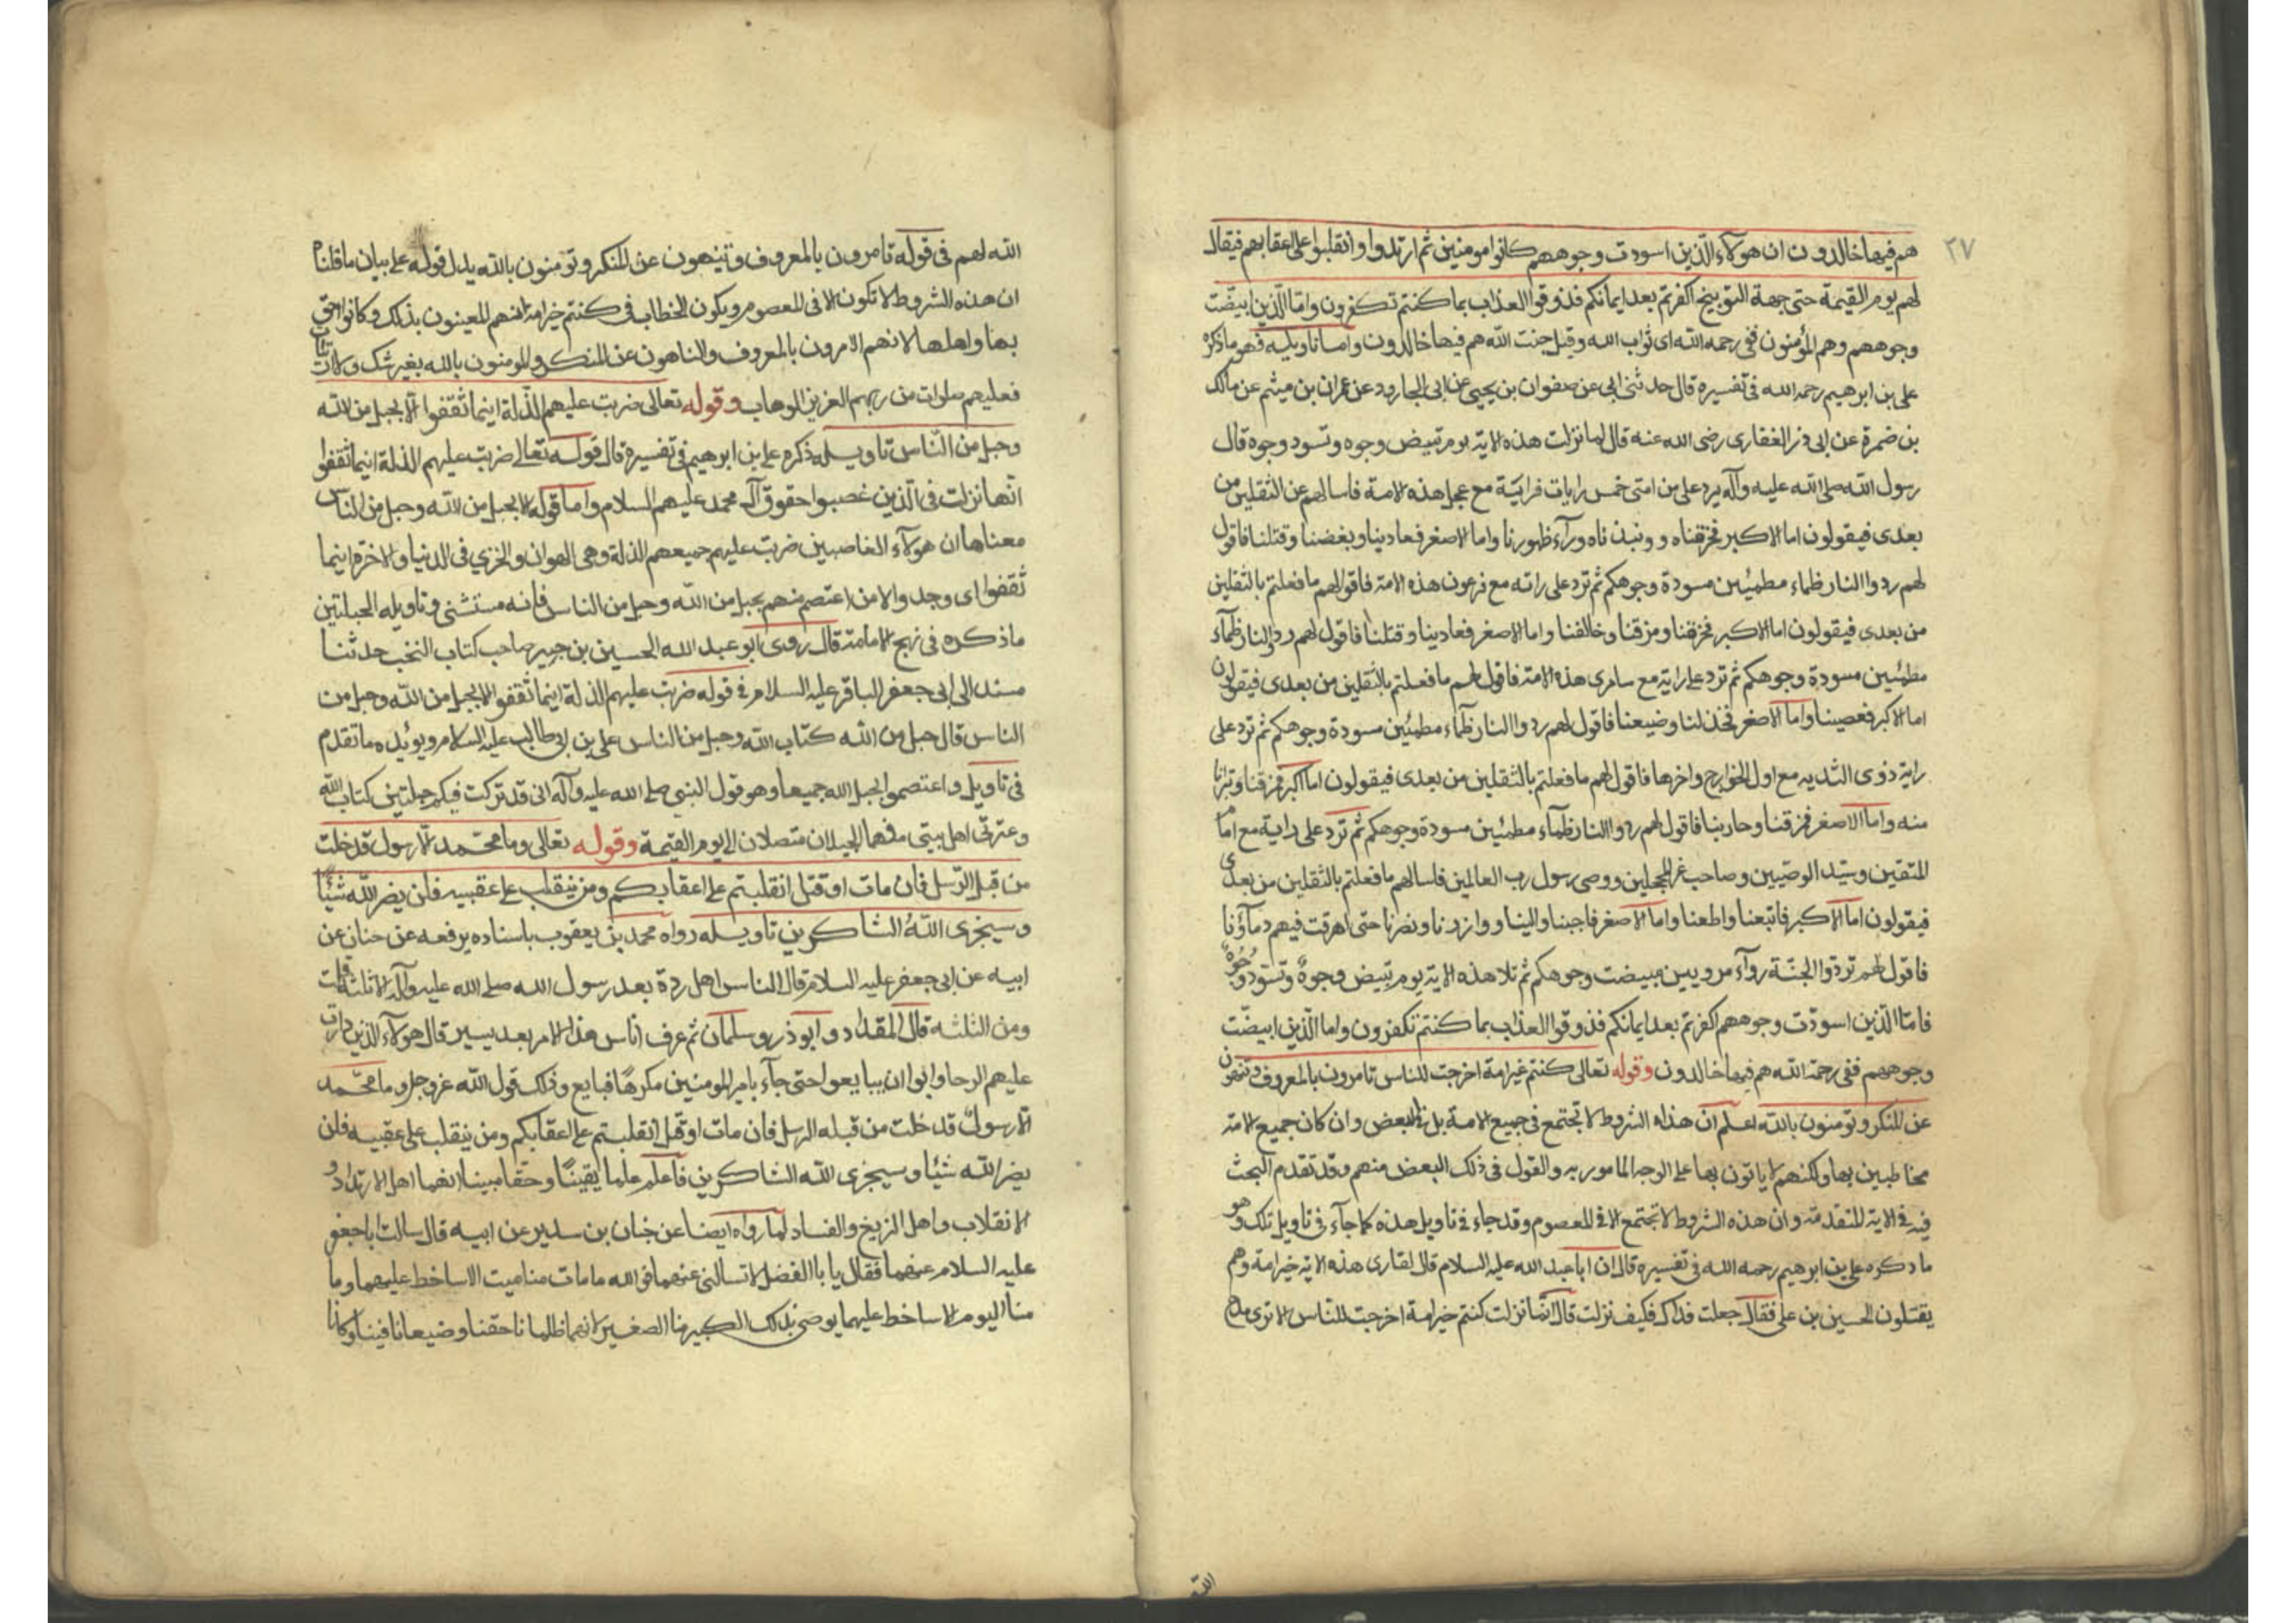 ٢٧
هم فيها خالدون ان هولاء الذين اسودت وجوههم كانوا مومنين ثم ارتدوا وانقلبوا على اعقابهم فيقال
لهم يوم القيمة حتى جهة التوبيخ اكفرتم بعد ايمانكم فذوقوا العذاب بما كنتم تكفرون واما الذين ابيضت
وجوههم وهم المؤمنون ففي رحمه الله اى ثواب الله وقيل جنت الله هم فيها خالدون واما تاويله فهو ما ذكره
على بن ابرهيم رحمه الله فى تفسيره قال حدثنى ابى عن صفوان بن يحيى عن ابى الجارود عن عمران بن ميثم عن مالك
بن ضمرة عن ابى ذر الغفارى رضى الله عنه قال لما نزلت هذه الاية يوم تبيض وجوه وتسود وجوه قال
رسول الله صلى الله عليه وآله يرد على من امتى خمس رايات فراية مع عجل هذه الامة فاسالهم عن الثقلين من
بعدى فيقولون اما الاكبر فخرقناه و ونبذناه ورآء ظهورنا واما الاصغر فعادينا وبغضنا وقتلنا فاقول
لهم ردوا النار ظماء مطمئين مسودة وجوهكم ثم ترد على راته مع فرعون هذه الامة فاقول لهم ما فعلتم بالثقلين
من بعدى فيقولون اما الاكبر فخرقنا ومزقنا وخالفنا واما الاصغر فعادينا وقتلنا فاقول لهم ردوا النار ظمآء
مطمئين مسودة وجوهكم ثم ترد على راية مع سامرى هذه الامة فاقول لهم ما فعلتم بالثقلين من بعدى فيقولون
اما الاكبر فعصينا واما الاصغر فخذلنا وضيعنا فاقول لهم ردوا النار ظمآء مطمئين مسودة وجوهكم ثم ترد على
راية ذوى الثديه مع اول الخوارج واخرها فاقول لهم ما فعلتم بالثقلين من بعدى فيقولون اما اكبر فمزقنا وتبرانا
منه واما الاصغر فمزقنا وحاربنا فاقول لهم ردوا النار ظمآء مطمئين مسودة وجوهكم ثم ترد على راية مع امام
المتقين وسيد الوصيين وصاحب غر المحجلين ووصى رسول رب العالمين فاسالهم ما فعلتم بالثقلين من بعدى
فيقولون اما الاكبر فاتبعنا واطعنا واما الاصغر فاجبنا والينا ووازرنا ونصرنا حتى اهرقت فيهم دمآؤنا
فاقول لهم تردّوا الجنّة روآء مرويين مبيضت وجوهكم ثم تلا هذه الاية يوم تبيض وجوهٌ وتسود وُجُوهٌ
فامّا الّذين اسودّت وجوههم اكفرتم بعد ايمانكم فذوقوا العذاب بما كنتم تكفرون واما الّذين ابيضّت
وجوههم ففى رحمة الله هم فيها خالدون وقوله تعالى كنتم خير امة اخرجت للناس تامرون بالمعروف وتنهون
عن المنكر وتومنون بالله اعلم ان هذه الشروط لا تجتمع فى جميع الامة بل فى البعض وان كان جميع الامة
مخاطبين بها ولكنهم لا ياتون بها على الوجه المامور به والقول فى ذلك البعض منهم وقد تقدم البحث
فيه فى الاية المتقدمة وان هذه الشروط لا تجتمع الا فى المعصوم وقد جاء فى تاويل هذه كما جآء فى تاويل تلك وهو
ما ذكره على بن ابرهيم رحمه الله فى تفسيره قال ان ابا عبد الله عليه السلام قال لقارى هذه الاية خير امة وهم
يقتلون الحسين بن على فقال جعلت فداك فكيف نزلت قال انّما نزلت كنتم خير امة اخرجت للنّاس الا ترى مدح
الله لهم فى قوله تامرون بالمعروف وتنهون عن المنكر وتومنون بالله يدل قوله على بيان ما قلنا
ان هذه الشروط لا تكون الا فى المعصوم ويكون الخطاب فى كنتم خير امة انهم المعينون بذلك وكانوا احق
بها واهلها لانهم الامرون بالمعروف والناهون عن المنكر والمومنون بالله بغير شك ولا ارتياب
فعليهم صلوات من ربهم العزيز الوهاب وقوله تعالى ضربت عليهم الذّلة اينما ثقفوا الّا بحبل من الله
وحبل من النّاس تاويله ذكره على بن ابرهيم فى تفسيره قال قوله تعالى ضربت عليهم الذلة اينما ثقفوا
انّها نزلت فى الّذين غصبوا حقوق آل محمد عليهم السلام واما قوله الا بحبل من الله وحبل من الناس
معناها ان هولآء الغاصبين ضربت عليهم جميعهم الذلة وهى الهوان والخزي فى الدنيا والاخرة اينما
ثقفوا اى وجدوا الا من اعتصم منهم بحبل من الله وحبل من الناس فانه مستثنى وتاويله الحبلين
ما ذكره فى نهج الامامة قال روى ابو عبد الله الحسين بن جبير صاحب كتاب النخب حدثنا
مسند الى ابى جعفر الباقر عليه السلام فى قوله ضربت عليهم الذلة اينما ثقفوا الا بحبل من الله وحبل من
الناس قال حبل من الله كتاب الله وحبل من الناس على بن ابى طالب عليه السلام ويوئده ما تقدم
فى تاويل واعتصموا بحبل الله جميعا وهو قول النبى صلى الله عليه وآله انى قد تركت فيكم حبلين كتاب الله
وعترتى اهل بيتى فهما الحبلان متصلان الى يوم القيمة وقوله تعالى وما محمد الّا رسول قد خلت
من قبل الرّسل فان مات او قتل انقلبتم على اعقابكم ومن ينقلب على عقبيه فلن يضر الله شيئًا
وسيجزى اللهُ الشاكرين تاويله رواه محمد بن يعقوب باسناده يرفعه عن حنان عن
ابيه عن ابى جعفر عليه السلام قال الناس اهل ردة بعد رسول الله صلى الله عليه وآله الا ثلثه قلت
ومن الثلثه قال المقداد وابو ذر وسلمان ثم عرف اناس هذا الامر بعد يسير قال هولآء الّذين دارت
عليهم الرحا وابوا ان يبايعوا حتى جآء بامير المومنين مكرهًا فبايع وذلك قول الله عز وجل وما محمّد
الّا رسولٌ قد خلت من قبله الرسل فان مات او قتل انقلبتم على اعقابكم ومن ينقلب على عقبيه فلن
يضر الله شيئا وسيجزى الله الشاكرين فاعلم علما يقينًا وحقا مبينا انهما اهل الارتداد و
الانقلاب واهل الزيغ والفساد لما رواه ايضا عن حنان بن سدير عن ابيه قال سالت ابا جعفر
عليه السلام عنهما فقال يا با الفضل لا تسالنى عنهما فو الله ما مات منا ميت الا ساخط عليهما وما
منا اليوم الا ساخط عليهما يوصى بذلك الكبير منا الصغير لانهما ظلمانا حقنا وضيعانا فيئنا وكانا